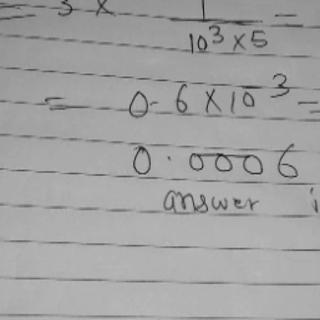 = 3 × 1/10³×5 =
= 0.6×10³ =
0.0006
answer i